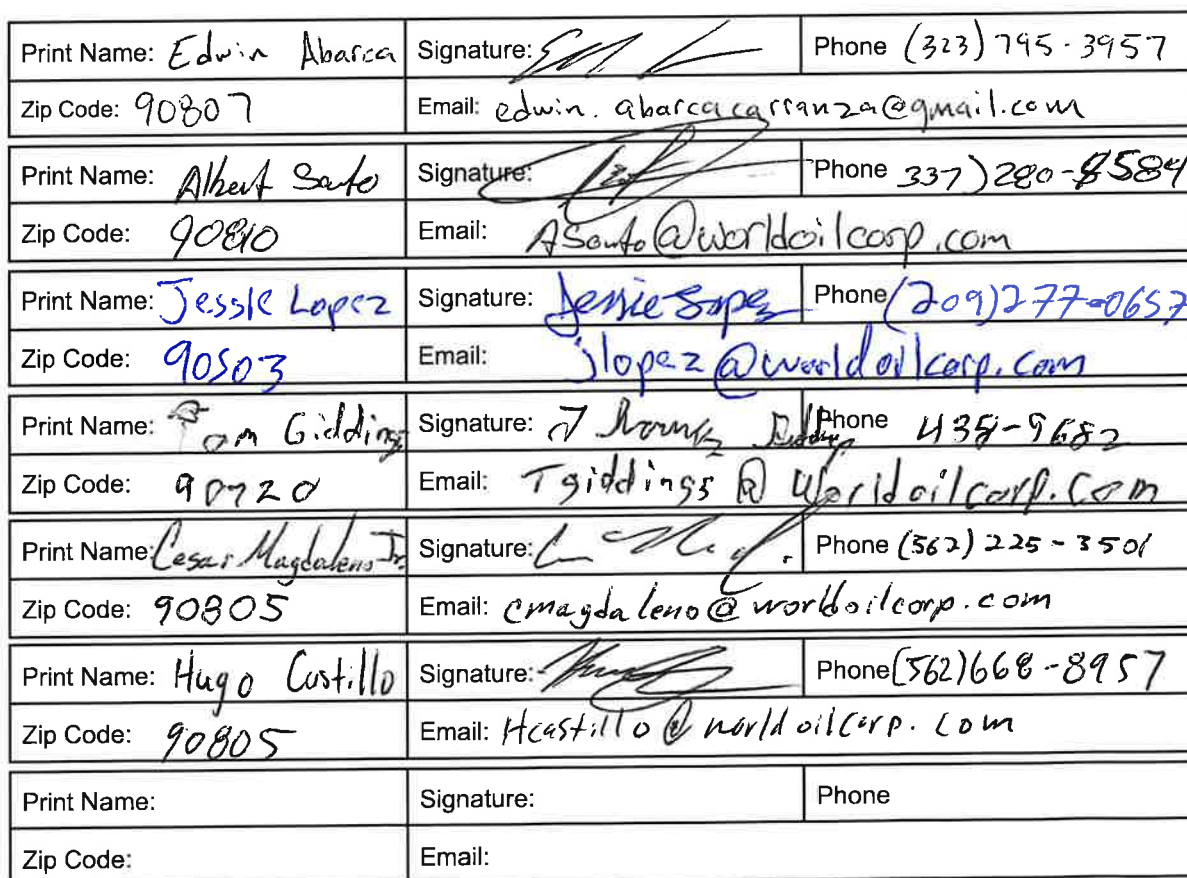 Print Name: Edwin Abarca Signature: Phone (323) 795-3957
Zip Code: 90807 Email: edwin.abarcacarranza@gmail.com
Print Name: Albert Santo Signature: Phone 337) 280-8584
Zip Code: 90810 Email: ASanto@worldoilcorp.com
Print Name: Jessie Lopez Signature: Jessie Lopez Phone (209) 277-0657
Zip Code: 90503 Email: jlopez@worldoilcorp.com
Print Name: Tom Giddings Signature: Phone 435-9682
Zip Code: 90720 Email: Tgiddings@Worldoilcorp.com
Print Name: Cesar Magdaleno Jr. Signature: Phone (562) 225-3501
Zip Code: 90805 Email: cmagdaleno@worldoilcorp.com
Print Name: Hugo Castillo Signature: Phone (562) 668-8957
Zip Code: 90805 Email: Hcastillo@worldoilcorp.com
Print Name: Signature: Phone
Zip Code: Email: